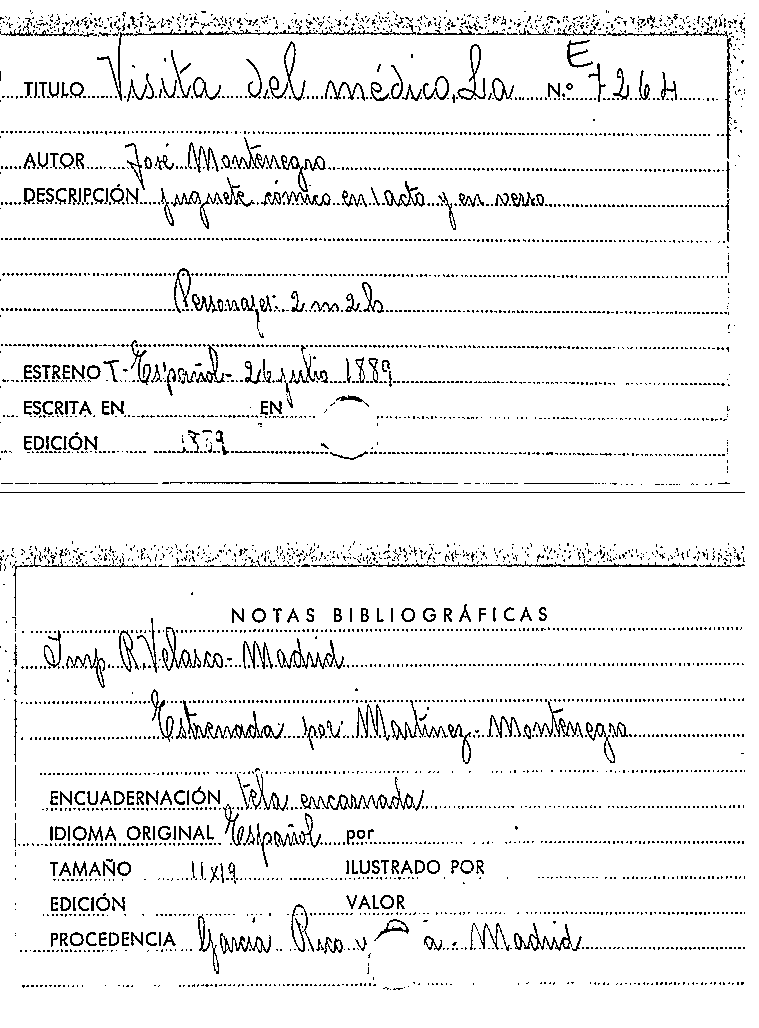 E
TITULO Visita del médico, La N.º 7264
AUTOR José Montenegro
DESCRIPCIÓN juguete cómico en 1 acto y en verso
Personajes: 2 m 2 h
ESTRENO T. Español - 26 julio 1889
ESCRITA EN EN
EDICIÓN 1889
NOTAS BIBLIOGRÁFICAS
Imp. R. Velasco - Madrid
Estrenada por Martinez - Montenegro
ENCUADERNACIÓN tela encarnada
IDIOMA ORIGINAL Español por
TAMAÑO 11x19 ILUSTRADO POR
EDICIÓN VALOR
PROCEDENCIA García Rico a - Madrid